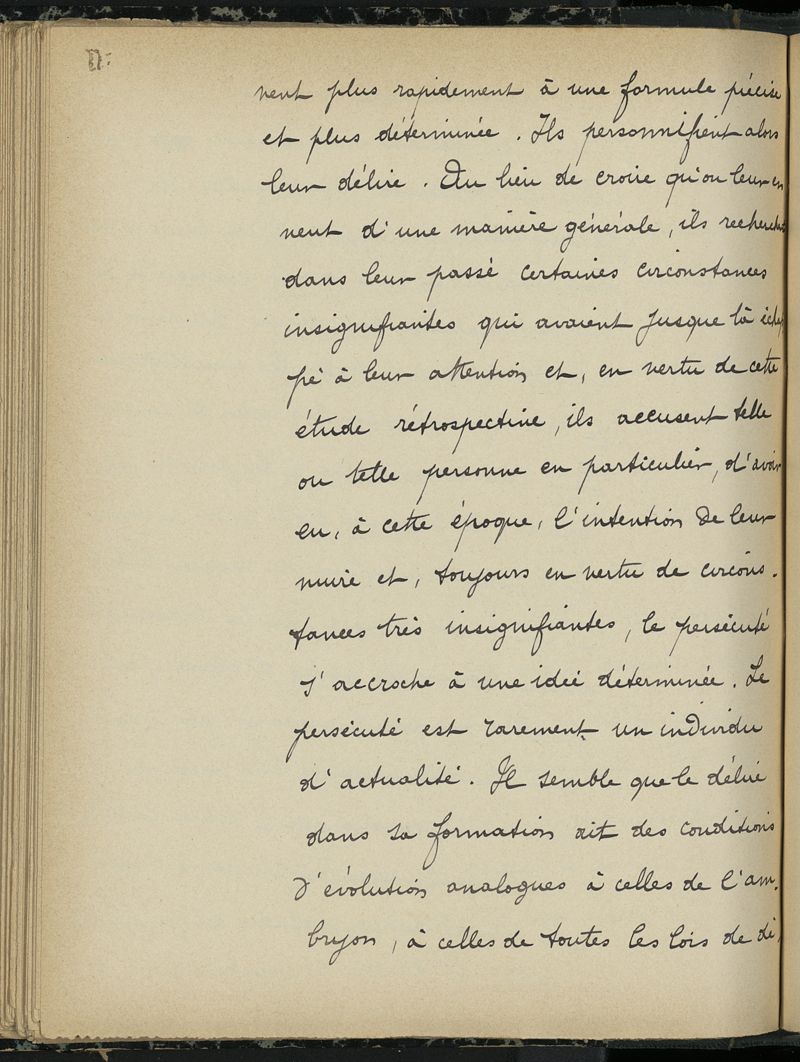 nent plus rapidement à une formule précise
et plus déterminée. Ils personnifient alors
leur délire. Au lieu de croire qu'on leur en
veut d'une manière générale, ils recherchent
dans leur passé certaines circonstances
insignifiantes qui avaient jusque là échap
pé à leur attention et, en vertu de cette
étude rétrospective, ils accusent telle
ou telle personne en particulier, d'avoir
eu, à cette époque, l'intention de leur
nuire et, toujours en vertu de circons.
tances très insignifiantes, le persécuté
s'accroche à une idée déterminée. Le
persécuté est rarement un individu
d'actualité. Il semble que le délire
dans sa formation ait des conditions
d'évolution analogues à celles de l'am.
bryon, à celles de toutes les lois de dé